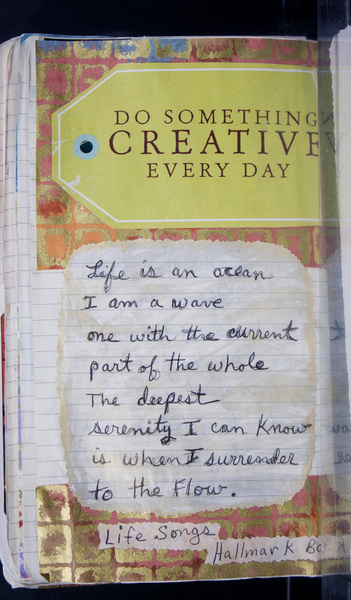 DO SOMETHING
CREATIVE
EVERY DAY
Life is an ocean
I am a wave
one with the current
part of the whole
The deepest
serenity I can know
is when I surrender
to the flow.
Life Songs
Hallmark